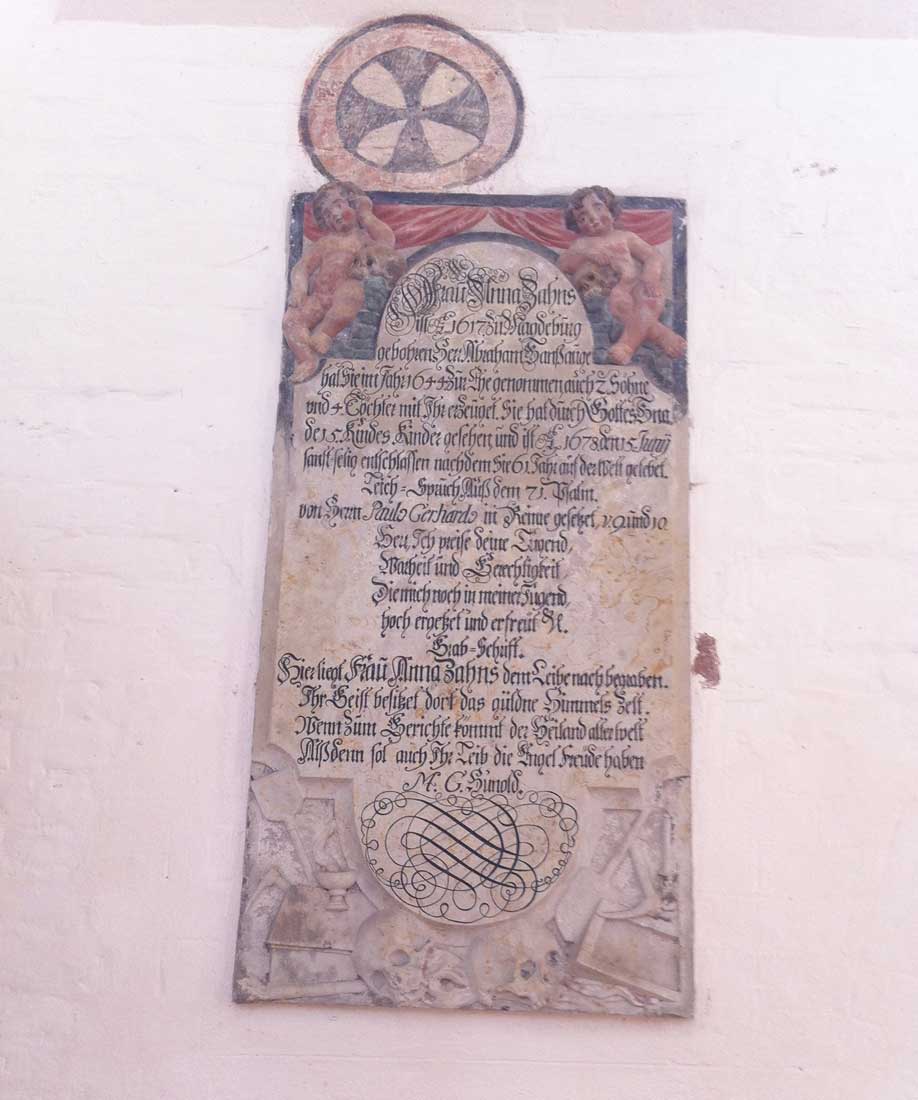 Frau Anna Zahns
ist A. 1617 zu Magdeburg
gebohren Herr Abraham
hat Sie im Jahr 1644 zur Ehe genommen auch 2. Söhne
und 4. Töchter mit Ihr erzeuget. Sie hat durch Gottes Gna-
de 15. Kindes Kinder gesehen und ist A. 1678 den 15 Junij
sanft-selig entschlaffen nachdem Sie 61. Jahr auf der Welt gelebet.
Leich-Spruch Auß dem 71. Psalm.
von Herrn Paulo Gerhardo in Reime gesetzet, v. 9 und 10
Herr, Ich preise deine Tugend,
Warheit und Gerechtigkeit
Die mich noch in meiner Jugend,
hoch ergetzet und erfreut
Grab-Schrift.
Hier liegt Frau Anna Zahns dem Leibe nach begraben.
Ihr Geist besitzet dort das güldne Himmels Zelt.
Wenn zum Gerichte kommt der Heiland aller welt
Alßdenn sol auch Ihr Leib die Engel Freude haben
M. G. Hunold.